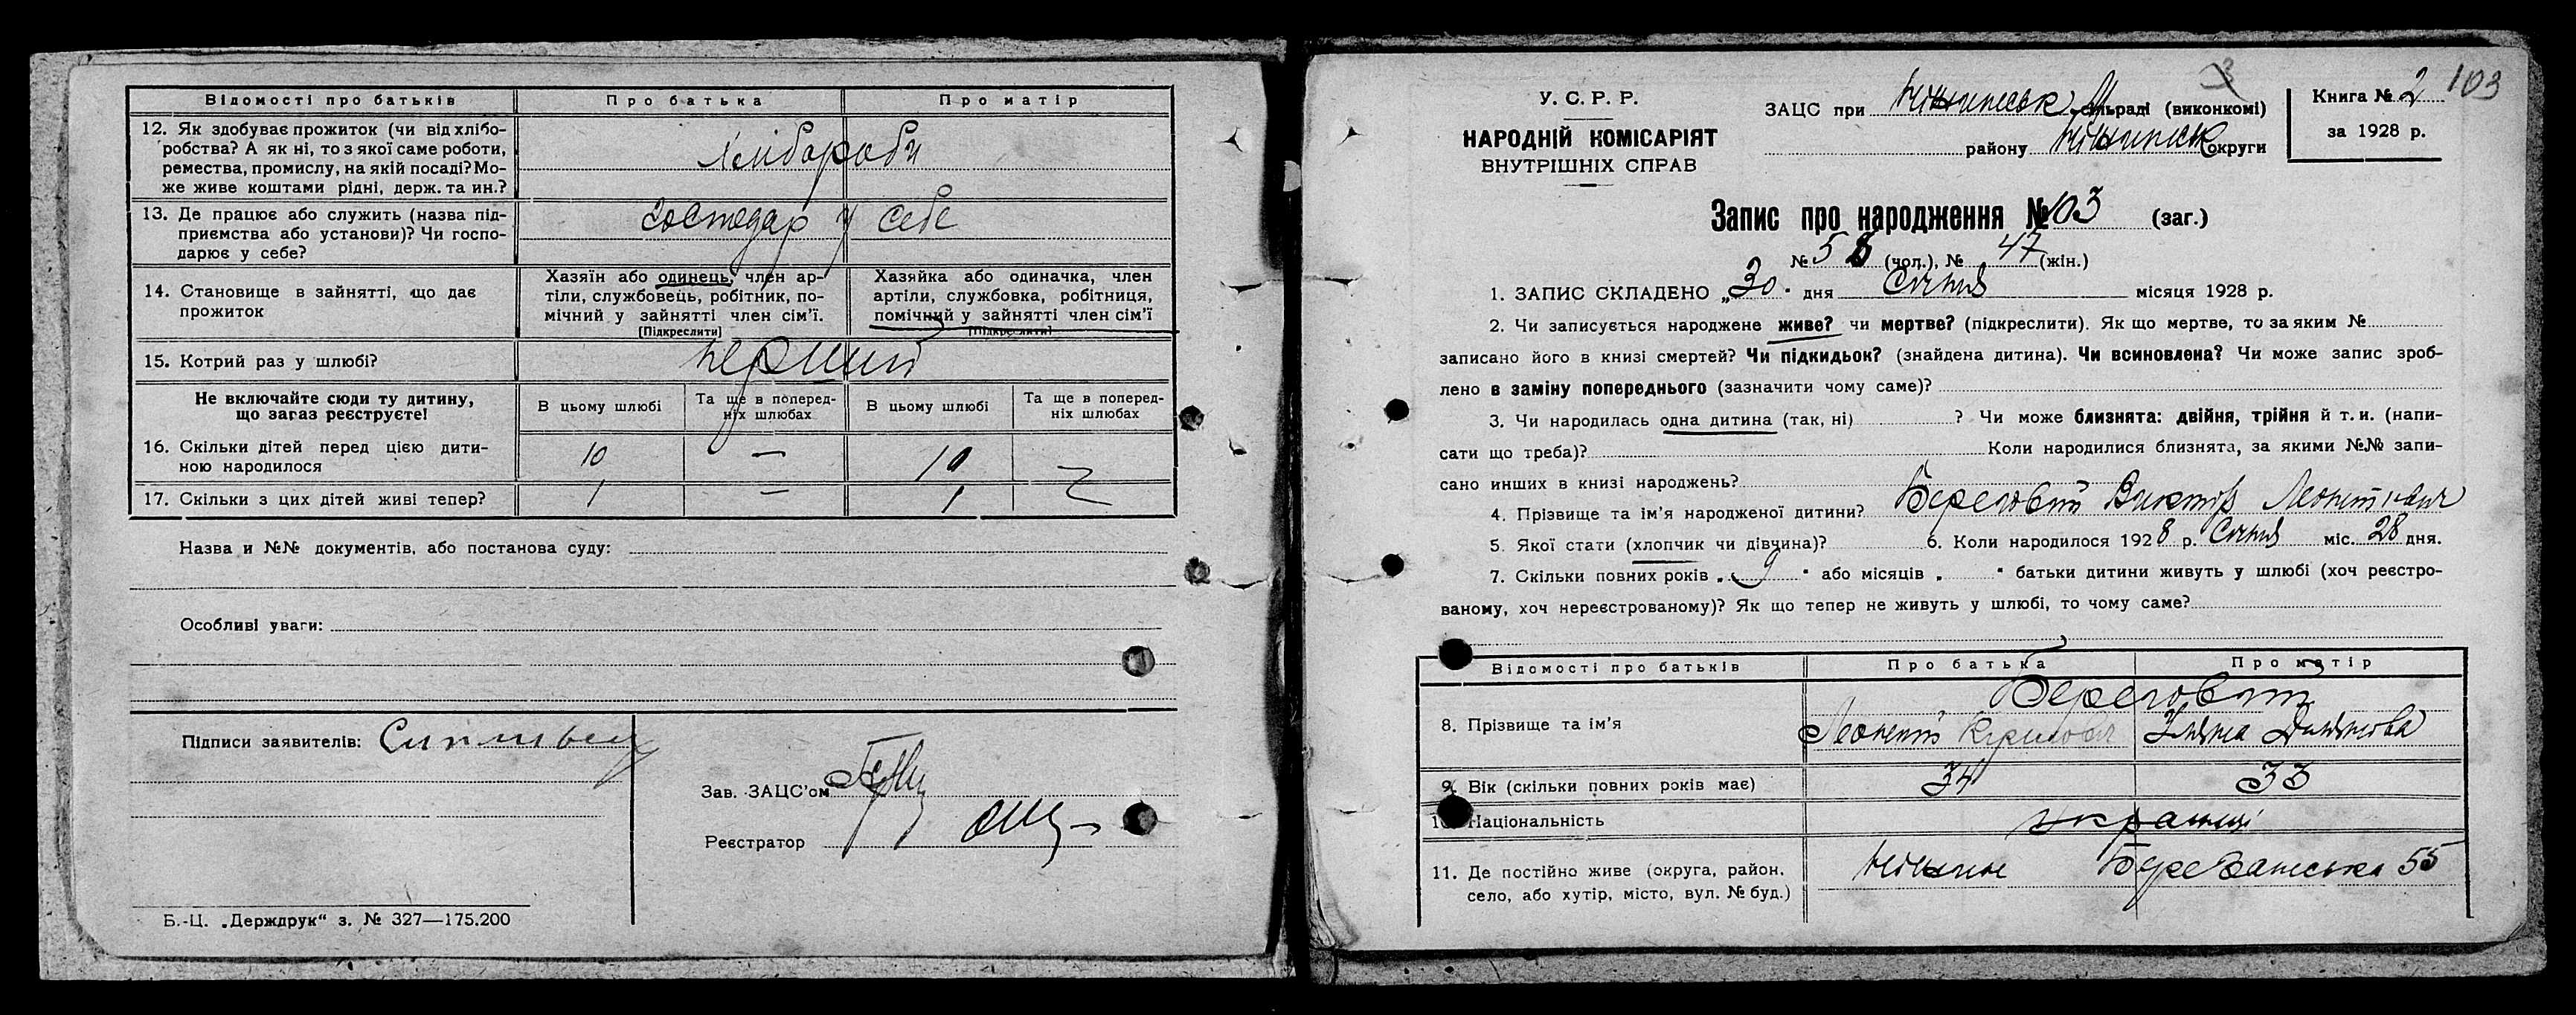 Відомості про батьків Про батька Про матір
12. Як здобуває прожиток (чи від хлібо-
робства? А як ні, то з якої саме роботи,
ремества, промислу, на якій посаді? Мо-
же живе коштами рідні, держ. та ин.?
хлібороби
13. Де працює або служить (назва під-
приємства або установи)? Чи госпо-
дарює у себе?
господар у себе
14. Становище в зайнятті, що дає
прожиток
Хазяїн або одинець, член ар-
тіли, службовець, робітник, по-
мічний у зайнятті член сім'ї.
[Підкреслити]
Хазяйка або одиначка, член
артіли, службовка, робітниця,
помічний у зайнятті член сім'ї
[Підкреслити]
15. Котрий раз у шлюбі? перший
Не включайте сюди ту дитину,
що зараз реєструєте!
В цьому шлюбі
Та ще в поперед-
ніх шлюбах
В цьому шлюбі
Та ще в поперед-
ніх шлюбах
16. Скільки дітей перед цією дити-
ною народилося
10 — 10 —
17. Скільки з цих дітей живі тепер? 1 — 1 —
Назва и №№ документів, або постанова суду:
Особливі уваги:
Підписи заявителів:
Зав. ЗАЦС'ом
Реєстратор
Б.-Ц. „Держдрук" з. № 327—175.200
103
У. С. Р. Р.
НАРОДНІЙ КОМІСАРІЯТ
ВНУТРІШНІХ СПРАВ
ЗАЦС при Ніжинськ сільраді (виконкомі)
району Ніжинськ округи
Книга № 2
за 1928 р.
Запис про народження № 103 (заг.)
№ 56 (чол.), № 47 (жін.)
1. ЗАПИС СКЛАДЕНО „30" дня Січня місяця 1928 р.
2. Чи записується народжене живе? чи мертве? (підкреслити). Як що мертве, то за яким №
записано його в книзі смертей? Чи підкидьок? (знайдена дитина). Чи всиновлена? Чи може запис зроб-
лено в заміну попереднього (зазначити чому саме)?
3. Чи народилась одна дитина (так, ні) ? Чи може близнята: двійня, трійня й т. и. (напи-
сати що треба)? Коли народилися близнята, за якими №№ запи-
сано инших в книзі народжень?
4. Прізвище та ім'я народженої дитини? Береговий Виктор Леонтієвич
5. Якої стати (хлопчик чи дівчина)? 6. Коли народилося 1928 р. Січня міс. 28 дня.
7. Скільки повних років „9" або місяців „ " батьки дитини живуть у шлюбі (хоч реєстро-
ваному, хоч нереєстрованому)? Як що тепер не живуть у шлюбі, то чому саме?
Відомості про батьків Про батька Про матір
8. Прізвище та ім'я
Береговий
Леонтій Кирилович Уляна
9. Вік (скільки повних років має) 34 33
10. Національність українці
11. Де постійно живе (округа, район,
село, або хутір, місто, вул. № буд.)
Ніжин Березанська 55